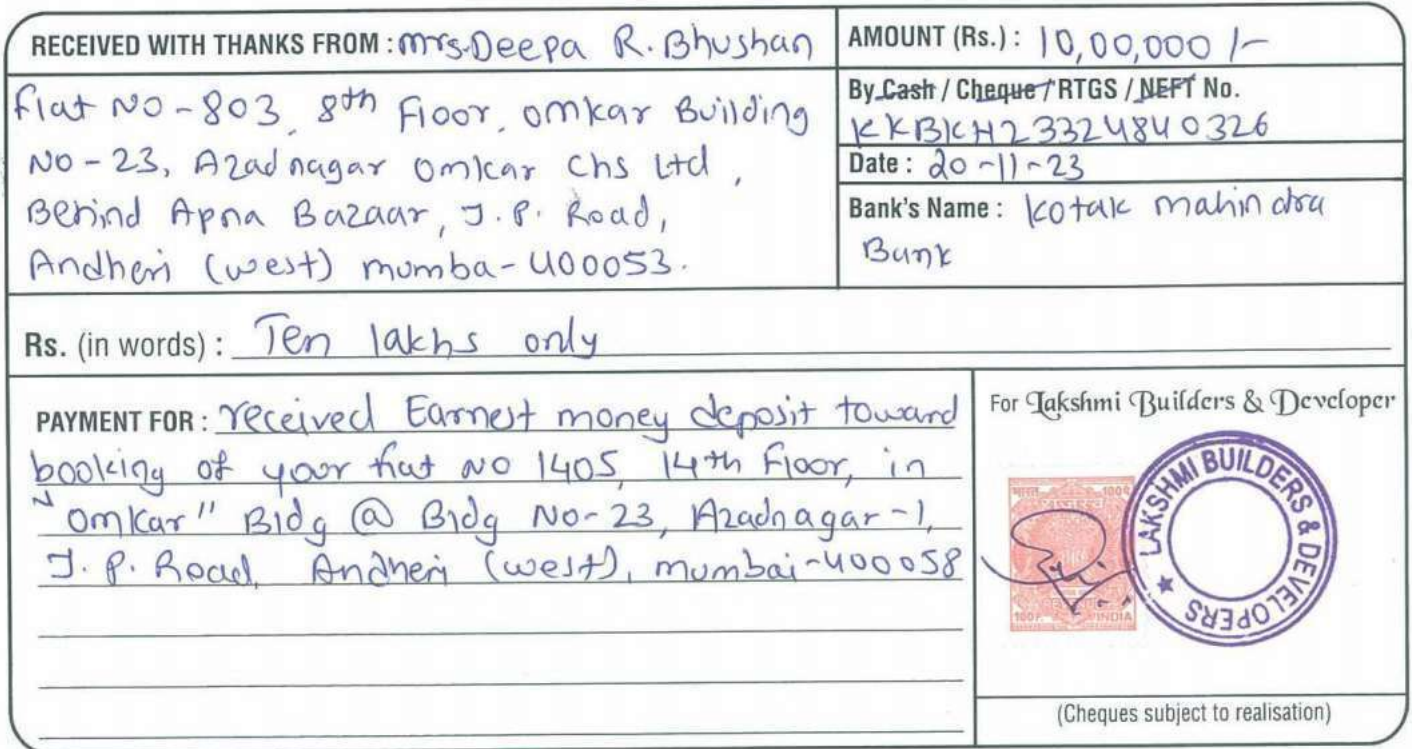 RECEIVED WITH THANKS FROM : Mrs. Deepa R. Bhushan
Flat NO - 803, 8th Floor, Omkar Building
NO - 23, Azad nagar Omkar Chs Ltd,
Behind Apna Bazaar, J. P. Road,
Andheri (west) mumba - 400053.
AMOUNT (Rs.) : 10,00,000 /-
By Cash / Cheque / RTGS / NEFT No.
KKBKH23324840326
Date : 20-11-23
Bank's Name : Kotak mahindra
Bank
Rs. (in words) : Ten lakhs only
PAYMENT FOR : received Earnest money deposit toward
booking of your flat NO 1405, 14th Floor, in
"Omkar" Bldg @ Bldg No-23, Azadnagar-1,
J. P. Road, Andheri (west), mumbai-400058
For Lakshmi Builders & Developer
LAKSHMI BUILDERS & DEVELOPERS
भारत 100P.
100P. INDIA
(Cheques subject to realisation)